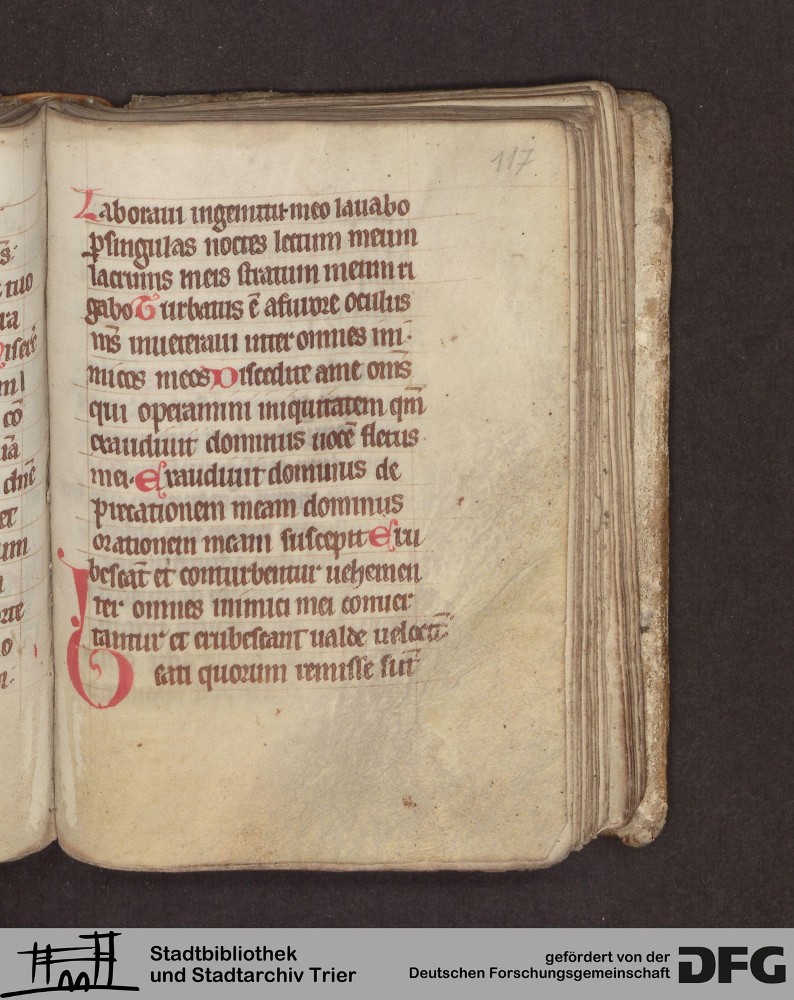 s:
tuo
ra
misere
ml
cō
iā
dn̄e
et
um
orte
o
117
Laboraui ingemitu meo lauabo
ꝑ singulas noctes lectum meum
lacrimis meis stratum meum ri
gabo Turbatus ē a furore oculus
m̄s inueteraui inter omnes ini
micos meos Discedite a me om̄s
qui operamini iniquitatem qm̄
exaudiuit dominus uocē fletus
mei. Exaudiuit dominus de
p̄cationem meam dominus
orationem meam suscepit Eru
bescāt et conturbentur uehemen
ter omnes inimici mei conuer
tantur et erubescant ualde uelocit̄
Beati quorum remisse sūt
Stadtbibliothek
und Stadtarchiv Trier
gefördert von der
Deutschen Forschungsgemeinschaft
DFG